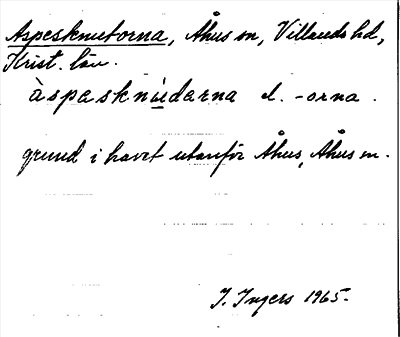 Aspesknutorna, Åhus sn, Villands hd,
Krist. län.
àspasknùdarna el. -orna.
grund i havet utanför Åhus, Åhus sn.
I. Ingers 1965.